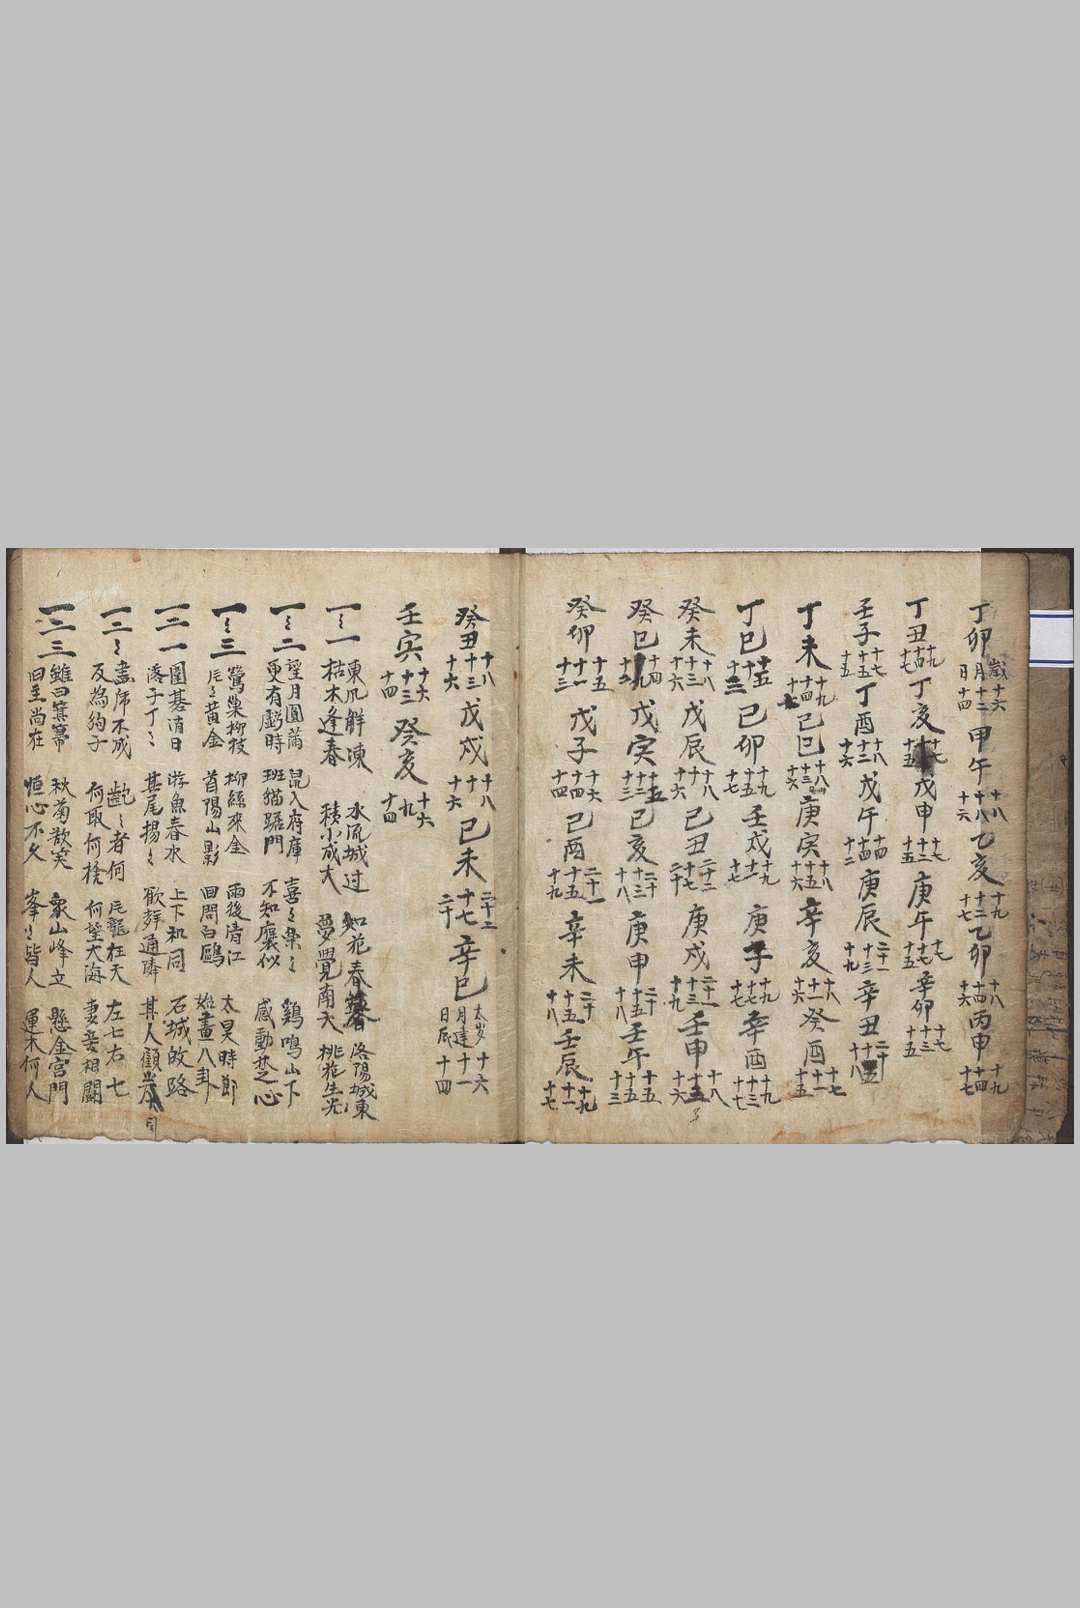 丁卯 歲十六 月十二 日十四 甲午 十八 十八 十六 乙亥 十九 十二 十七 乙卯 十八 十四 十六 丙申 十九 十四 十七
丁丑 十九 十四 十七 丁亥 十七 十五 戊申 十七 十二 十五 庚午 十七 十七 十五 辛卯 十七 十三 十五
壬子 十七 十五 十五 丁酉 十八 十二 十六 戊午 十四 十四 十二 庚辰 二十一 十三 十九 辛丑 二十 十五 十八
丁未 十九 十四 十七 己巳 十八 十三 十六 庚寅 十八 十五 十六 辛亥 十八 十一 十六 癸酉 十七 十一 十五
丁巳 十五 十一 十三 己卯 十九 十五 十七 壬戌 十九 十一 十七 庚子 十九 十七 十七 辛酉 十九 十三 十七
癸未 十八 十三 十六 戊辰 十八 十一 十六 己丑 二十二 十七 二十 庚戌 二十一 十三 十九 壬申 十八 十五 十六
癸巳 十四 戊寅 十五 十三 十三 己亥 二十 十三 十八 庚申 二十 十五 十八 壬午 十五 十五 十三
癸卯 十五 十一 十三 戊子 十六 十四 十四 己酉 二十一 十五 十九 辛未 二十 十五 十八 壬辰 十九 十一 十七
癸丑 十八 十三 十六 戊戌 十八 十一 十六 己未 二十二 十七 二十 辛巳 太岁 十六 月建 十一 日辰 十四
壬寅 十六 十三 十四 癸亥 十六 九 十四
一ミ一 東風解凍 枯木逢春 水流城过 積小成大 如花春暮 夢覺南天 洛陽城東 桃花生光
一ミ二 望月圓滿 更有虧時 鼠入府庫 班猫踞門 喜ミ樂ミ 不知廉似 鷄鳴山下 感動於心
一ミ三 鶯巢柳枝 片ミ黃金 柳絲來金 首陽山影 雨後淸江 回問白鷗 太昊時節 始畫八卦
一二一 圍碁消日 落子丁ミ 游魚春水 其尾揚ミ 上下和同 歡群通隣 石城故路 其人顧
一二ミ 畫乕不成 反為狗子 何取何捨 飛龍在天 何望大海 左七右七 妻妾相鬪
一二三 雖曰箕箒 曰至尚在 秋菊散笑 恒心不久 衆山峰立 峯ミ皆人 懸金宮門 運木何人